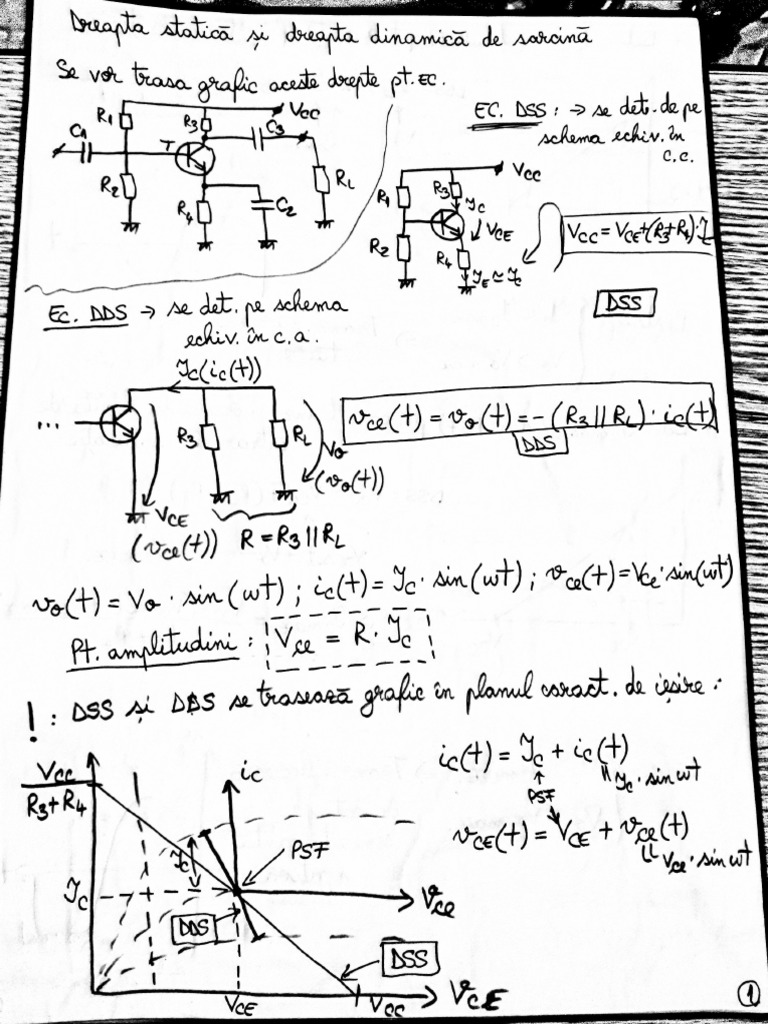 Dreapta statică și dreapta dinamică de sarcină
Se vor trasa grafic aceste drepte pt. EC.
VCC
R1
R3
C1
T
C3
R2
R4
C2
RL
EC. DSS : → se det. de pe
schema echiv. în
c.c.
VCC
R1
R3
IC
VCE
R2
R4
IE ≃ IC
VCC = VCE+(R3+R4)·IC
DSS
EC. DDS → se det. pe schema
echiv. în c.a.
Ic (ic(t))
...
R3
RL
Vo
(vo(t))
VCE
(vce(t))
R = R3 || RL
vce(t) = vo(t) = - (R3 || RL) · ic(t)
DDS
vo(t) = Vo · sin(wt) ; ic(t) = Ic · sin(wt) ; vce(t) = Vce · sin(wt)
Pt. amplitudini : Vce = R · Ic
! : DSS și DDS se trasează grafic în planul caract. de ieșire :
VCC
R3+R4
ic
Ic
PSF
IC
Vce
DDS
DSS
VCE
VCC
VCE
iC(t) = IC + ic(t)
PSF
Ic · sin wt
vCE(t) = VCE + vce(t)
Vce · sin wt
1